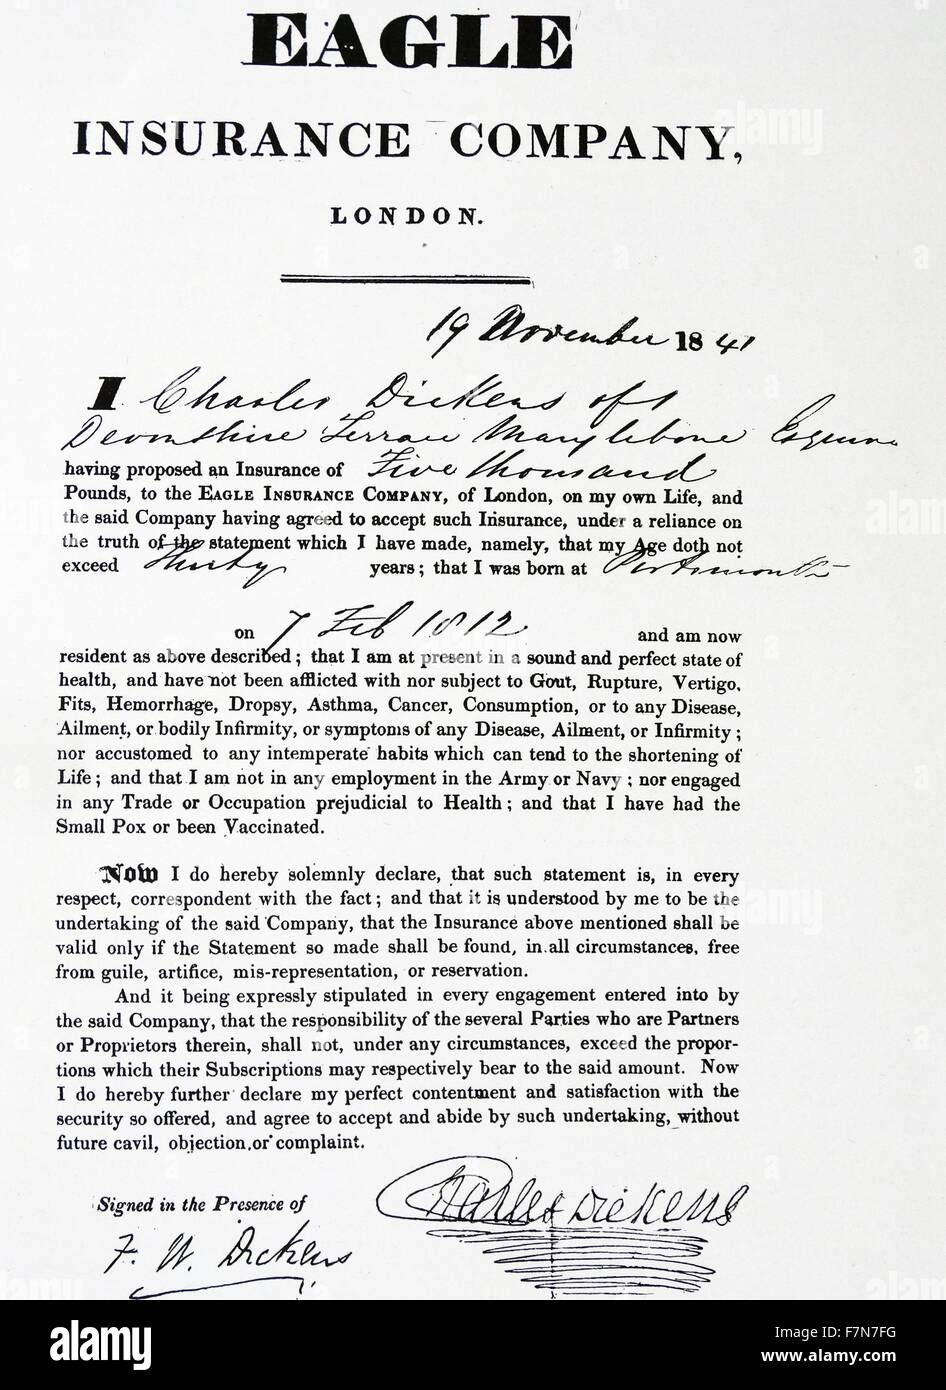 EAGLE
INSURANCE COMPANY,
LONDON.
19 November 1841
I Charles Dickens of 1
Devonshire Terrace Marylebone Esquire
having proposed an Insurance of Five thousand
Pounds, to the EAGLE INSURANCE COMPANY, of London, on my own Life, and
the said Company having agreed to accept such Insurance, under a reliance on
the truth of the statement which I have made, namely, that my Age doth not
exceed Thirty years; that I was born at Portsmouth
on 7 Feb 1812 and am now
resident as above described; that I am at present in a sound and perfect state of
health, and have not been afflicted with nor subject to Gout, Rupture, Vertigo,
Fits, Hemorrhage, Dropsy, Asthma, Cancer, Consumption, or to any Disease,
Ailment, or bodily Infirmity, or symptoms of any Disease, Ailment, or Infirmity;
nor accustomed to any intemperate habits which can tend to the shortening of
Life; and that I am not in any employment in the Army or Navy; nor engaged
in any Trade or Occupation prejudicial to Health; and that I have had the
Small Pox or been Vaccinated.
Now I do hereby solemnly declare, that such statement is, in every
respect, correspondent with the fact; and that it is understood by me to be the
undertaking of the said Company, that the Insurance above mentioned shall be
valid only if the Statement so made shall be found, in all circumstances, free
from guile, artifice, mis-representation, or reservation.
And it being expressly stipulated in every engagement entered into by
the said Company, that the responsibility of the several Parties who are Partners
or Proprietors therein, shall not, under any circumstances, exceed the propor-
tions which their Subscriptions may respectively bear to the said amount. Now
I do hereby further declare my perfect contentment and satisfaction with the
security so offered, and agree to accept and abide by such undertaking, without
future cavil, objection, or complaint.
Signed in the Presence of
Charles Dickens
F. W. Dickens
alamy
Image ID: F7N7FG
www.alamy.com